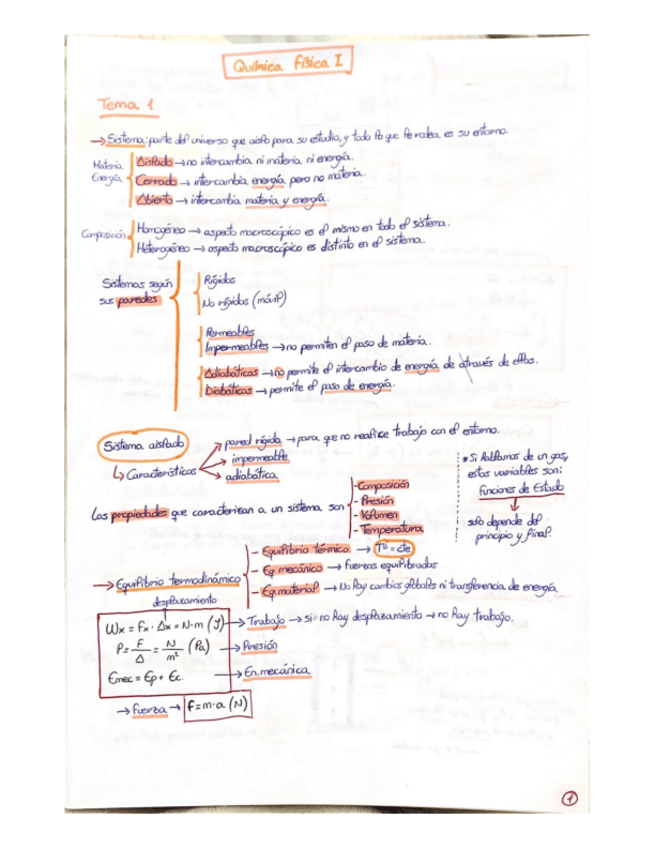 Química Física I
Tema 1
→ Sistema: parte del universo que aislo para su estudio, y todo lo que le rodea, es su entorno.
Materia Energía
Aislado → no intercambia ni materia, ni energía.
Cerrado → intercambia energía, pero no materia.
Abierto → intercambia materia y energía.
Composición
Homogéneo → aspecto macroscópico es el mismo en todo el sistema.
Heterogéneo → aspecto macroscópico es distinto en el sistema.
Sistemas según sus paredes
Rígidos
No rígidos (móvil)
Permeables
Impermeables → no permiten el paso de materia.
Adiabáticas → no permite el intercambio de energía de através de ellas.
Diabáticas → permite el paso de energía.
Sistema aislado
↳ Características
pared rígida → para que no realice trabajo con el entorno.
impermeable
adiabática
* Si hablamos de un gas, estas variables son:
funciones de Estado
↓
solo depende del principio y final.
Las propiedades que caracterizan a un sistema son
- Composición
- Presión
- Volumen
- Temperatura
→ Equilibrio termodinámico
- Equilibrio térmico → Tª = cte
- Eq mecánico → fuerzas equilibradas
- Eq. material → No hay cambios globales ni transferencia de energía.
desplazamiento
Wx = Fx · Δx = N·m (J) → Trabajo → si no hay desplazamiento → no hay trabajo.
P = F/A = N/m² (Pa) → Presión
Emec = Ep + Ec → En. mecánica
→ fuerza → f = m·a (N)
1